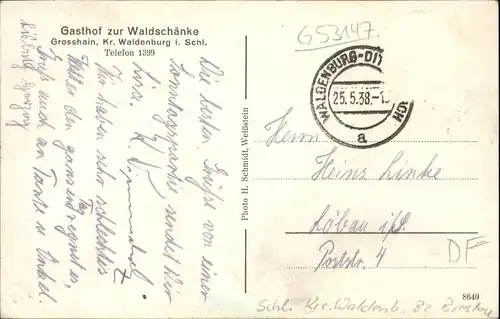 Gasthof zur Waldschänke
Grosshain, Kr. Waldenburg i. Schl.
Telefon 1399
G53147
WALDENBURG-DIT
25.5.38.-1
a
Die besten Grüße von einer
Sonntagspartie sendet Dir
Wir haben sehr schlechtes
Wetter den ganzen Tag regnet es,
Gruß auch an Tante u Onkel
Photo H. Schmidt, Weißstein
Herrn
Heinz Linke
Löbau i/S.
Poststr. 4
DF
8640
Schl. Krs. Waldenb. Bz Breslau